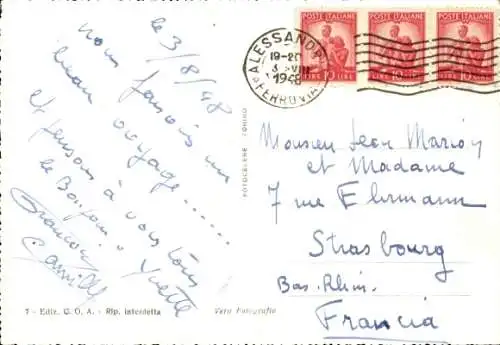 le 3/8/48
nous faisons un
beau voyage......
et pensons à vous tous
le Bonjour. Yvette
Camille
7 - Ediz. G. O. A. - Rip. interdetta
Vera Fotografia
FOTOCELERE TORINO
POSTE ITALIANE POSTE ITALIANE POSTE ITALIANE
LIRE 10 LIRE 10 LIRE 10 LIRE
ALESSANDRIA
19-20
3 · VIII
1948
FERROVIA
Monsieur Jean Marion
et Madame
7 rue Ehrmann
Strasbourg
Bas. Rhin.
Francia